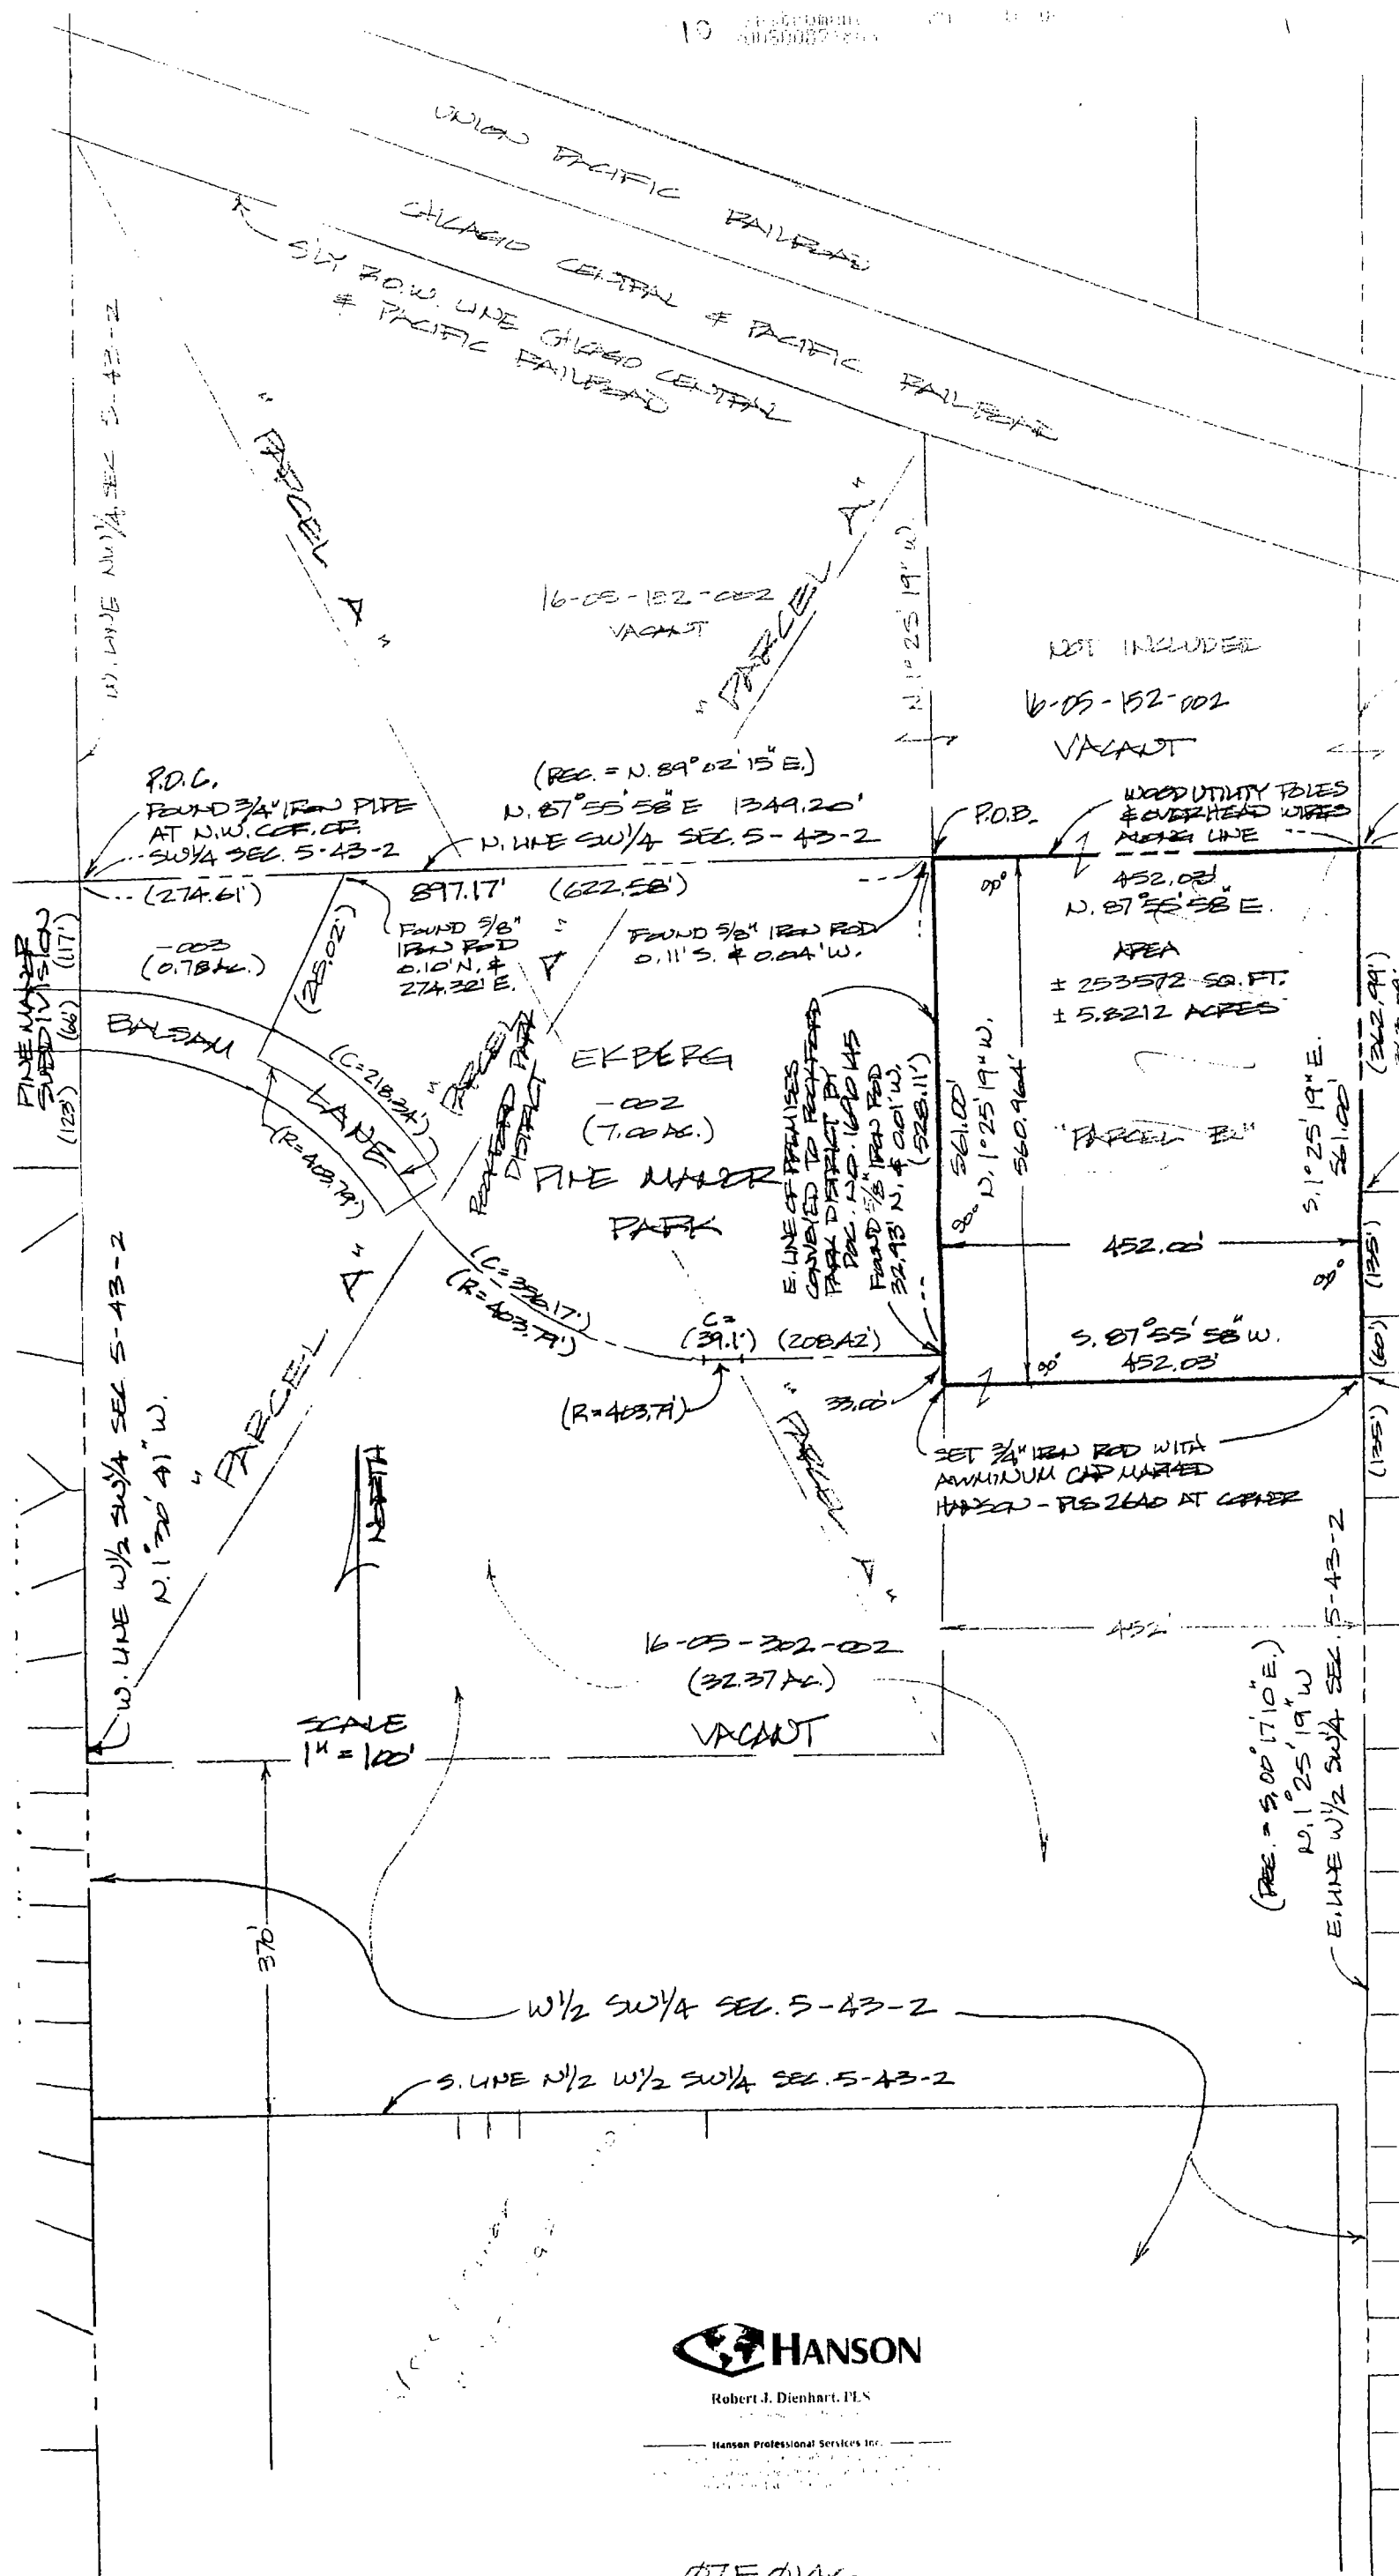 10
UNION PACIFIC RAILROAD
CHICAGO CENTRAL & PACIFIC RAILROAD
S'LY R.O.W. LINE CHICAGO CENTRAL
& PACIFIC RAILROAD
W. LINE NW1/4 SEC 5-43-2
"PARCEL A"
"PARCEL A"
N. 1° 25' 19" W.
16-05-152-002
VACANT
NOT INCLUDED
16-05-152-002
VACANT
P.O.C.
FOUND 3/4" IRON PIPE
AT N.W. COR. OF
SW1/4 SEC. 5-43-2
(REC. = N. 89° 02' 15" E.)
N. 87° 55' 58" E 1349.20'
N. LINE SW1/4 SEC. 5-43-2
P.O.B.
WOOD UTILITY POLES
& OVERHEAD WIRES
ALONG LINE
(274.61')
897.17' (622.58')
452.03'
N. 87° 55' 58" E.
PINE MANOR
SUBDIVISION
(117')
(66')
(123')
-003
(0.78 AC.)
FOUND 5/8"
IRON ROD
0.10' N. &
274.32' E.
FOUND 5/8" IRON ROD
0.11' S. & 0.04' W.
AREA
± 253572 SQ. FT.
± 5.8212 ACRES
BALSAM LANE
(C=218.34')
(R=403.79')
"PARCEL A"
ROCKFORD PARK
DISTRICT
EKBERG
-002
(7.00 AC.)
PINE MANOR
PARK
E. LINE OF PREMISES
CONVEYED TO ROCKFORD
PARK DISTRICT BY
DOC. NO. 1690145
FOUND 5/8" IRON ROD
32.93' N. & 0.01' W.
(528.11')
561.00'
N. 1° 25' 19" W.
560.964'
90°
"PARCEL B"
S. 1° 25' 19" E.
561.00'
(362.99')
90°
452.00'
90°
(135')
(60')
(135')
S. 87° 55' 58" W.
452.03'
90°
(C=396.17')
(R=403.79')
C=
(39.1') (208.42')
(R=403.79')
33.00'
"PARCEL A"
"PARCEL A"
SET 3/4" IRON ROD WITH
ALUMINUM CAP MARKED
HANSON - PLS 2640 AT CORNER
W. LINE W1/2 SW1/4 SEC 5-43-2
N. 1° 30' 41" W.
NORTH
SCALE
1" = 100'
16-05-302-002
(32.37 AC.)
VACANT
452'
(REC. = S. 00° 17' 10" E.)
N. 1° 25' 19" W
E. LINE W1/2 SW1/4 SEC. 5-43-2
370'
W1/2 SW1/4 SEC. 5-43-2
S. LINE N1/2 W1/2 SW1/4 SEC. 5-43-2
HANSON
Robert J. Dienhart, PLS
Hanson Professional Services Inc.